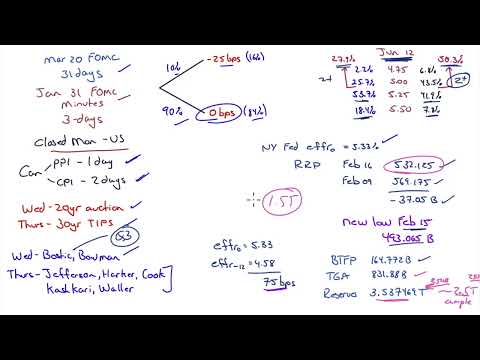 mar 20 FOMC
31 days
Jan 31 FOMC
minutes
3-days
Closed Mon - US
Can
PPI - 1 day
CPI - 2 days
Wed - 20yr auction
Thurs - 30yr TIPS
Wed - Bostic, Bowman
Thurs - Jefferson, Harker, Cook
Kashkari, Waller
10%
-25bps (16%)
90%
0bps (84%)
Jun 12
27.9%
50.3%
2+
2.2% 4.75 6.8%
25.7% 5.00 43.5%
2+
53.7% 5.25 41.9%
18.4% 5.50 7.8%
NY Fed effr₀ = 5.33%
RRP Feb 16 532.1E5
Feb 09 569.175
-37.05 B
1.5T
new low Feb 15
493.065 B
effr₀ = 5.33
effr₋₁₂ = 4.58
75bps
BTFP 164.772 B
TGA 831.88 B
Reserves 3.537469 T
~2.5T
ample